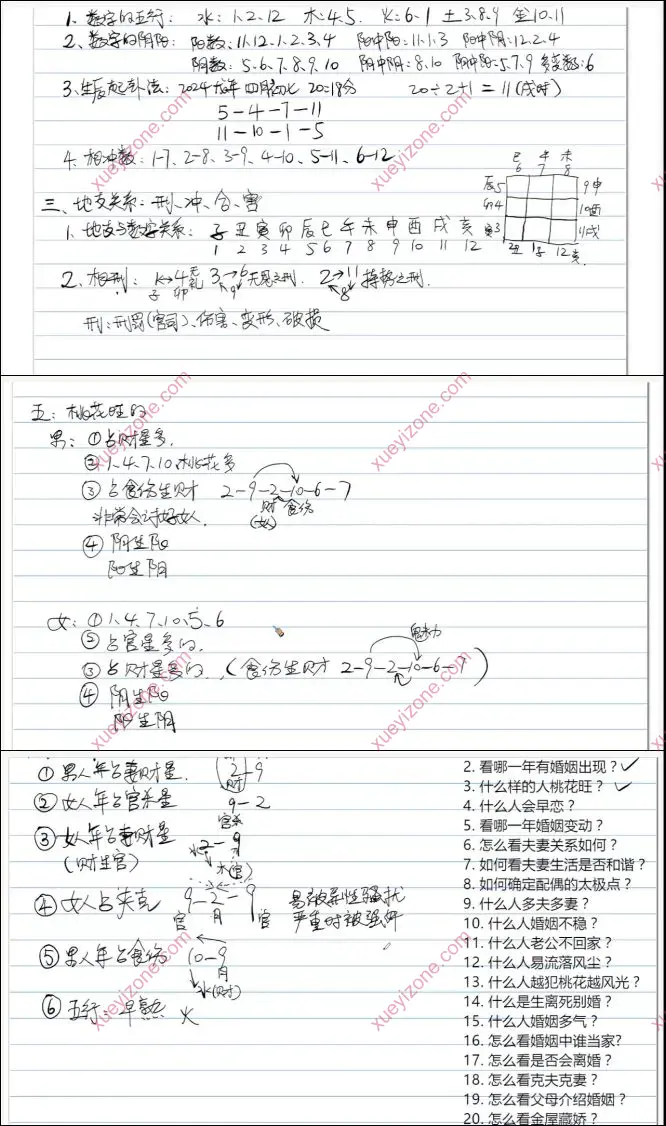 1、数字的五行： 水：1、2、12 木：4、5、 火：6、1 土3、8、9 金10、11
2、数字的阴阳：阳数：11、12、1、2、3、4 阳中阳：11、1、3 阳中阴：12、2、4
阴数：5、6、7、8、9、10 阴中阴：8、10 阴中阳：5、7、9 多变数：6
3、生辰起卦法：2024龙年 四月初七 20：18分 20÷2+1 = 11(戌时)
5-4-7-11
11-10-1-5
4、相冲数：1-7、2-8、3-9、4-10、5-11、6-12
巳 午 未
6 7 8
辰5 9申
卯4 10酉
寅3 11戌
2丑 1子 12亥
三、地支关系：刑、冲、合、害
1、地支与数字关系：子 丑 寅 卯 辰 巳 午 未 申 酉 戌 亥
1 2 3 4 5 6 7 8 9 10 11 12
2、相刑：1↔4无礼 3→6无恩之刑、 2→11持势之刑.
子 卯 9 8
刑：刑罚(官司)、伤害、变形、破损
五：桃花旺的
男：①占财星多.
②1、4、7、10、桃花多
③占食伤生财 2-9-2-10-6-7
非常会讨好女人. 财 食伤
(女)
④阴生阳
阳生阴
女：①1、4、7、10、5、6
②占官星多的.
魅力
③占财星多的.(食伤生财 2-9-2-10-6-7)
④阴生阳
阳生阴
①男人年占妻财星. 2-9
财
②女人年占官杀星 9-2
官杀
③女人年占妻财星 2-9
(财生官) 木(官)
④女人占夹克 9-2-9 易被异性骚扰
官 月 官 严重时被强奸
⑤男人年占食伤 10-9
月
水(财)
⑥五行：早熟 火
2. 看哪一年有婚姻出现？✓
3. 什么样的人桃花旺？✓
4. 什么人会早恋？
5. 看哪一年婚姻变动？
6. 怎么看夫妻关系如何？
7. 如何看夫妻生活是否和谐？
8. 如何确定配偶的太极点？
9. 什么人多夫多妻？
10. 什么人婚姻不稳？
11. 什么人老公不回家？
12. 什么人易流落风尘？
13. 什么人越犯桃花越风光？
14. 什么是生离死别婚？
15. 什么人婚姻多气？
16. 怎么看婚姻中谁当家?
17. 怎么看是否会离婚？
18. 怎么看克夫克妻？
19. 怎么看父母介绍婚姻？
20. 怎么看金屋藏娇？
xueyizone.com
xueyizone.com
xueyizone.com
xueyizone.com
xueyizone.com
xueyizone.com
xueyizone.com
xueyizone.com